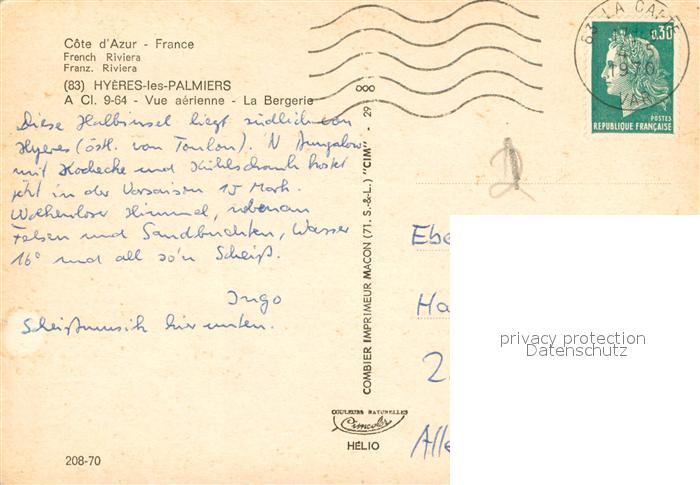 Côte d'Azur - France
French Riviera
Franz. Riviera
(83) HYÈRES-les-PALMIERS
A Cl. 9-64 - Vue aérienne - La Bergerie
Diese Halbinsel liegt südlich von
Hyeres (östl. von Toulon). N Bungalow
mit Kochecke und Kühlschrank kostet
jetzt in der Vorsaison 15 Mark.
Wolkenloser Himmel, nebenan
Felsen und Sandbuchten, Wasser
16° und all so'n Scheiß.
Ingo
Scheißmusik hier unten.
208-70
COMBIER IMPRIMEUR MACON (71. S.-&-L.) "CIM" - 29
COULEURS NATURELLES
Cimcolor
HÉLIO
83 LA CAPTE
1970
VAR
0,30
POSTES
RÉPUBLIQUE FRANÇAISE
Ebe
Ha
2
Alle
privacy protection
Datenschutz